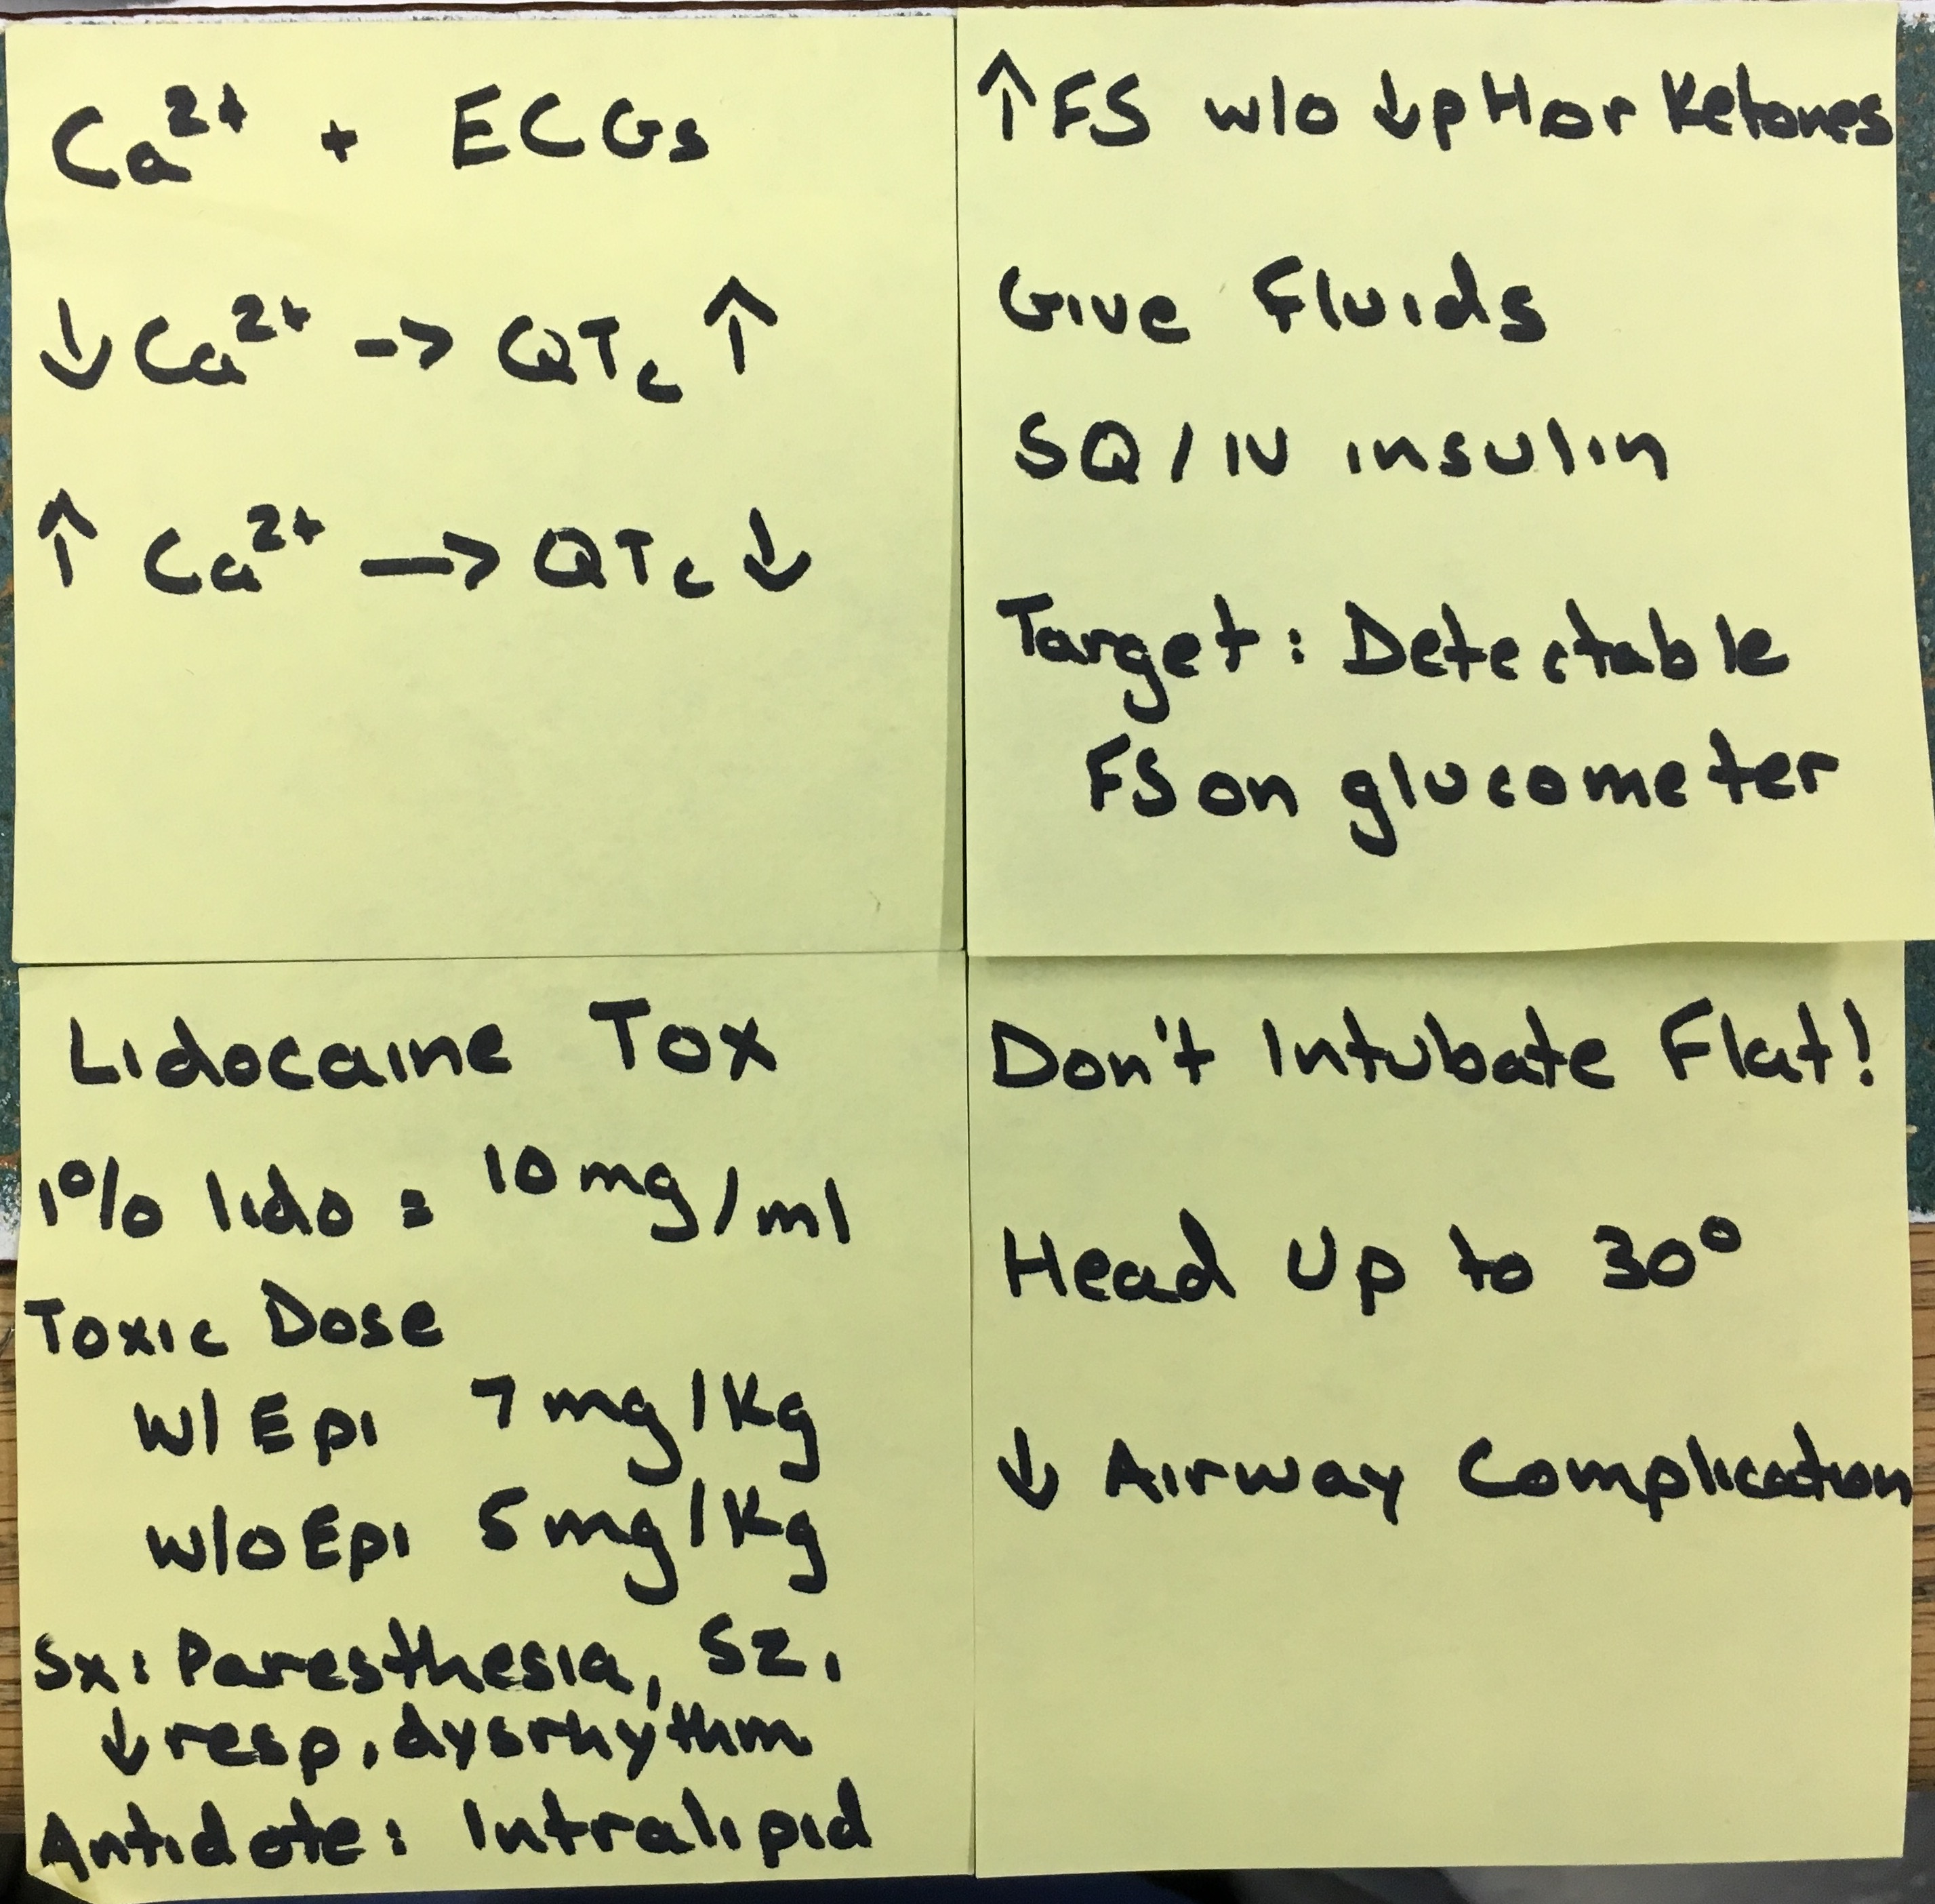 Ca²⁺ + ECGs
↓Ca²⁺ -> QTc ↑
↑ Ca²⁺ -> QTc ↓
↑FS w/o ↓pH or Ketones
Give Fluids
SQ/IV insulin
Target: Detectable
FS on glucometer
Lidocaine Tox
1% lido = 10mg/ml
Toxic Dose
W/ Epi 7mg/kg
W/o Epi 5mg/kg
Sx: Paresthesia, SZ,
↓resp, dysrhythm
Antidote: Intralipid
Don't Intubate Flat!
Head Up to 30°
↓ Airway Complication